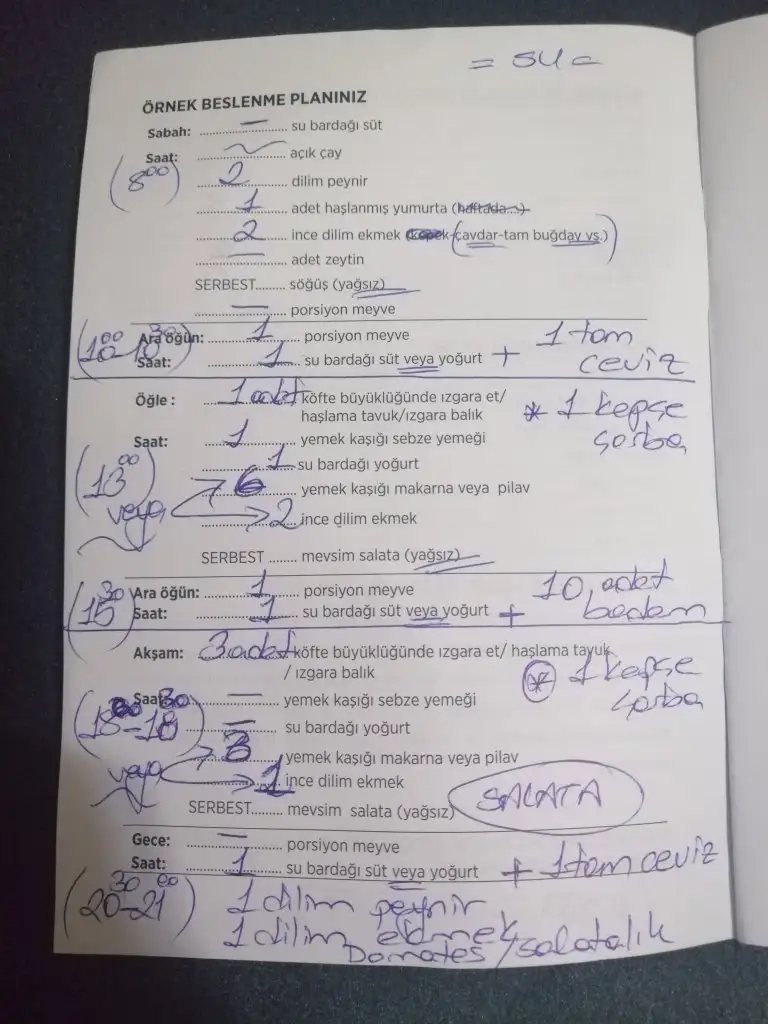 = su =
ÖRNEK BESLENME PLANINIZ
Sabah: .......—....... su bardağı süt
Saat: .............. açık çay
(8⁰⁰) ......2....... dilim peynir
......1....... adet haşlanmış yumurta (haftada...)
......2....... ince dilim ekmek (kepek-çavdar-tam buğday vs.)
......—....... adet zeytin
SERBEST........ söğüş (yağsız)
......—....... porsiyon meyve
(10⁰⁰-10³⁰) Ara öğün: ......1....... porsiyon meyve
Saat: ......1....... su bardağı süt veya yoğurt + 1 tam ceviz
Öğle : 1 adet köfte büyüklüğünde ızgara et/
haşlama tavuk/ızgara balık * 1 kepçe çorba
Saat: ......1....... yemek kaşığı sebze yemeği
(13⁰⁰) ......1....... su bardağı yoğurt
......6....... yemek kaşığı makarna veya pilav
veya ......2....... ince dilim ekmek
SERBEST ....... mevsim salata (yağsız)
(15³⁰) Ara öğün: ......1....... porsiyon meyve
Saat: ......1....... su bardağı süt veya yoğurt + 10 adet badem
Akşam: 3 adet köfte büyüklüğünde ızgara et/ haşlama tavuk
/ ızgara balık * 1 kepçe çorba
Saat: ......—....... yemek kaşığı sebze yemeği
(18⁰⁰-18³⁰) ......—....... su bardağı yoğurt
......3....... yemek kaşığı makarna veya pilav
veya ......1....... ince dilim ekmek
SERBEST........ mevsim salata (yağsız) SALATA
Gece: ......—....... porsiyon meyve
Saat: ......1....... su bardağı süt veya yoğurt + 1 tam ceviz
(20³⁰-21⁰⁰) 1 dilim peynir
1 dilim ekmek
Domates / salatalık